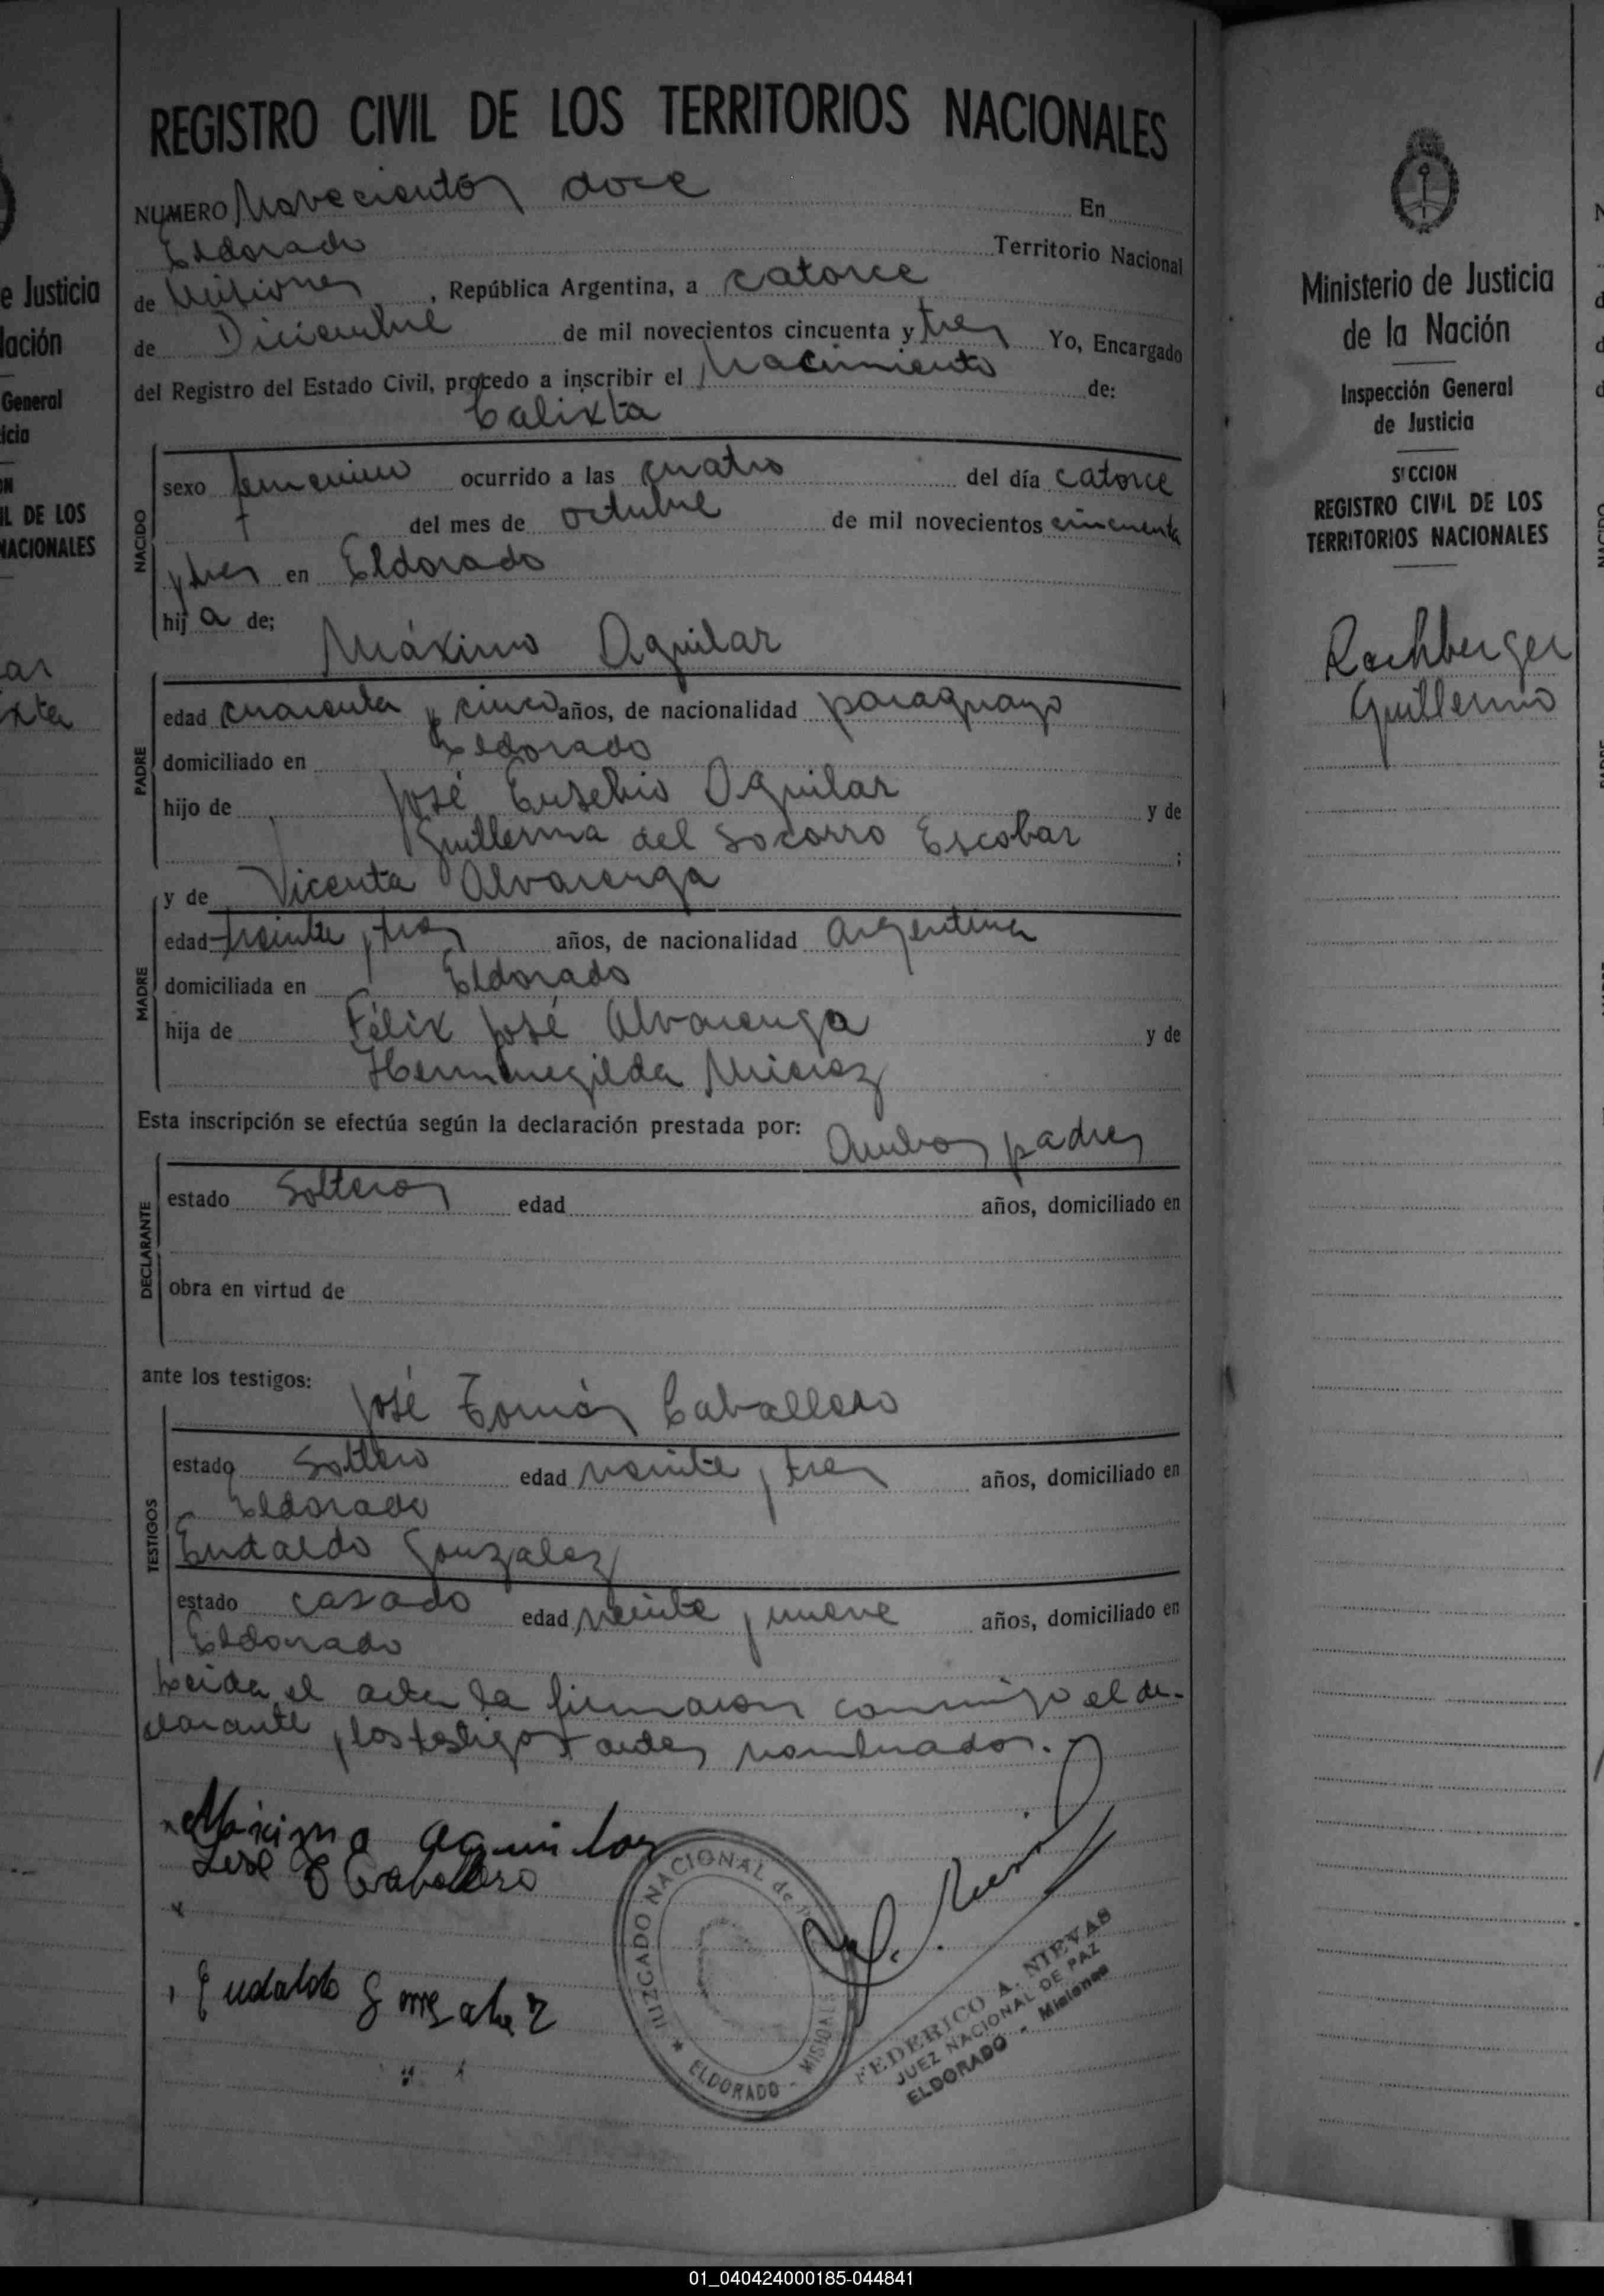 e Justicia
lación
General
icia
ON
IL DE LOS
NACIONALES
ar
ixta
REGISTRO CIVIL DE LOS TERRITORIOS NACIONALES
NUMERO Novecientos doce En
Eldorado Territorio Nacional
de Misiones, República Argentina, a catorce
de Diciembre de mil novecientos cincuenta y tres Yo, Encargado
del Registro del Estado Civil, procedo a inscribir el Nacimiento de:
Calixta
NACIDO
sexo femenino ocurrido a las cuatro del día catorce
del mes de octubre de mil novecientos cincuenta
y tres en Eldorado
hija de;
Máximo Aguilar
PADRE
edad cuarenta y cinco años, de nacionalidad paraguayo
domiciliado en Eldorado
hijo de José Eusebio Aguilar y de
Guillerma del Socorro Escobar ;
MADRE
y de Vicenta Alvarenga
edad treinta y tres años, de nacionalidad argentina
domiciliada en Eldorado
hija de Félix José Alvarenga y de
Hermenegilda
Esta inscripción se efectúa según la declaración prestada por: Ambos padres
DECLARANTE
estado Solteros edad años, domiciliado en
obra en virtud de
ante los testigos:
José Tomás Caballero
TESTIGOS
estado Soltero edad veinte y tres años, domiciliado en
Eldorado
Eudaldo Gonzalez
estado casado edad veinte y nueve años, domiciliado en
Eldorado
Leida el acta la firmaron conmigo el de-
clarante y los testigos antes nombrados.-
Máximo aguilar
José T Caballero
Eudaldo Gonzalez
JUZGADO NACIONAL de PAZ
ELDORADO - MISIONES
FEDERICO A. NIEVAS
JUEZ NACIONAL DE PAZ
ELDORADO - Misiones
Ministerio de Justicia
de la Nación
Inspección General
de Justicia
SECCION
REGISTRO CIVIL DE LOS
TERRITORIOS NACIONALES
Rachberger
Guillermo
01_040424000185-044841